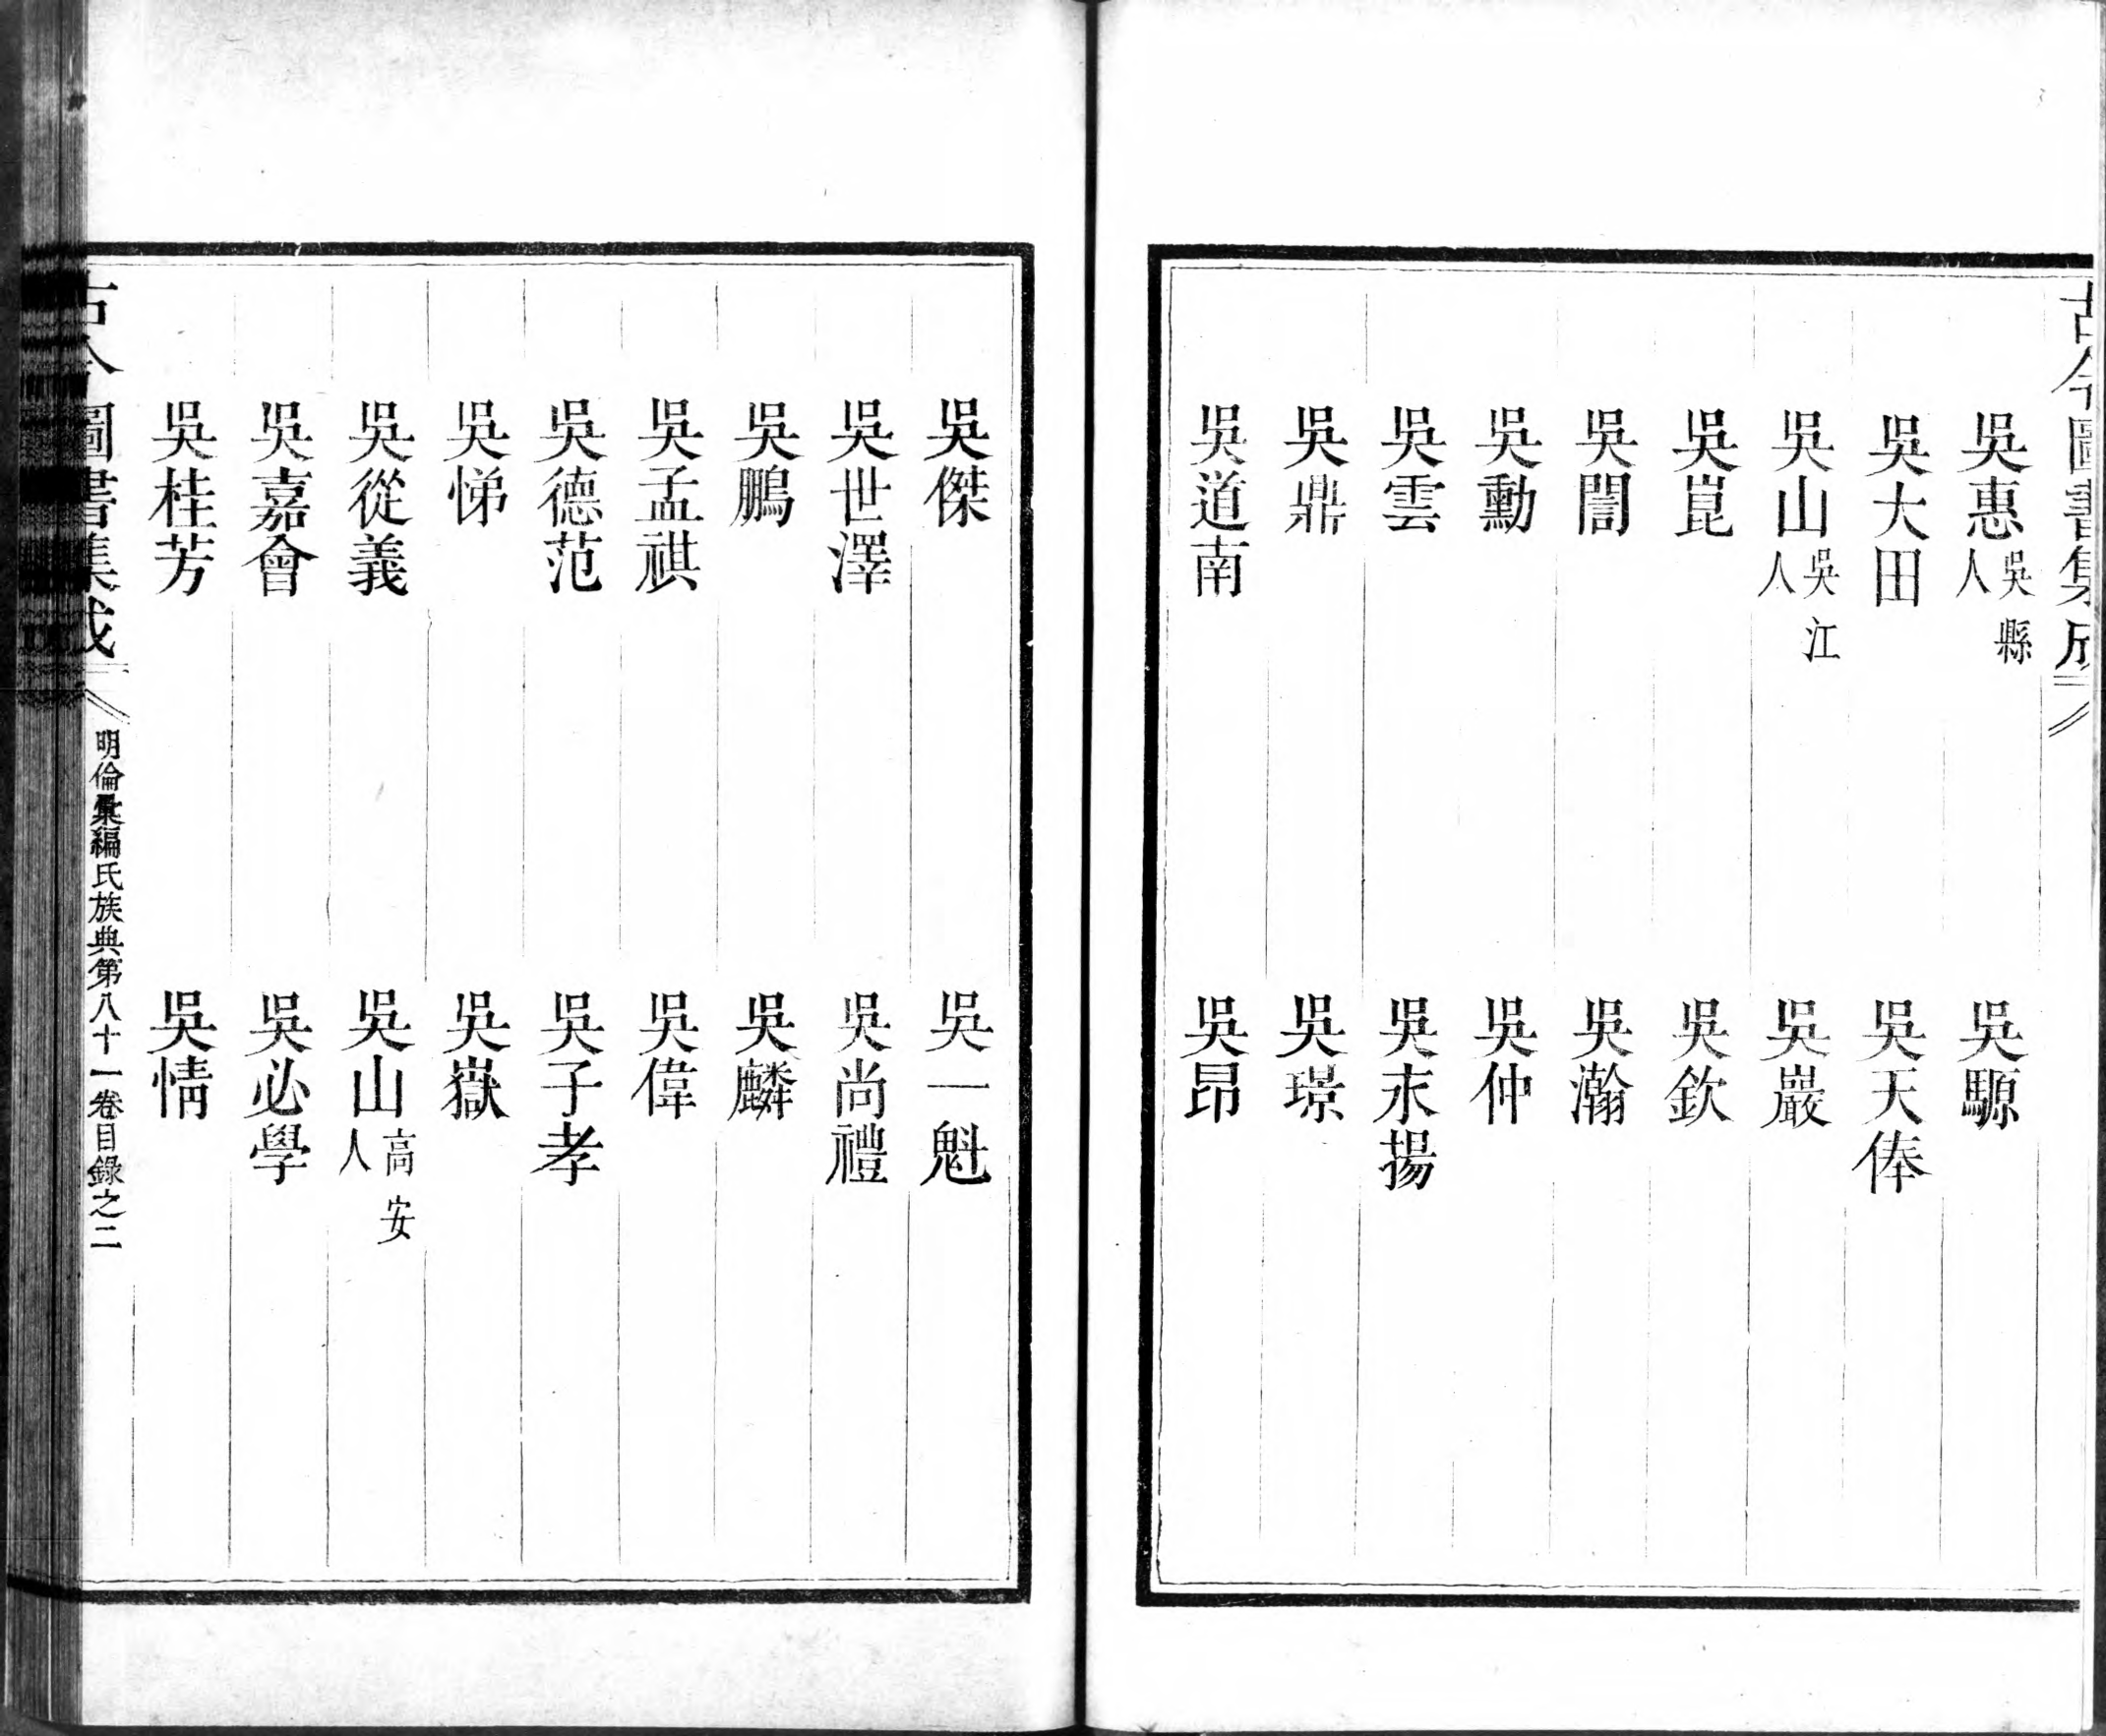 古今圖書集成
吳惠吳縣人 吳騵
吳大田 吳天俸
吳山吳江人 吳巖
吳崑 吳欽
吳誾 吳瀚
吳勳 吳仲
吳雲 吳永揚
吳鼎 吳璟
吳道南 吳昂
吳傑 吳一魁
吳世澤 吳尚禮
吳鵬 吳麟
吳孟祺 吳偉
吳德范 吳子孝
吳悌 吳嶽
吳從義 吳山高安人
吳嘉會 吳必學
吳桂芳 吳情
古今圖書集成 明倫彙編氏族典第八十一卷目錄之二